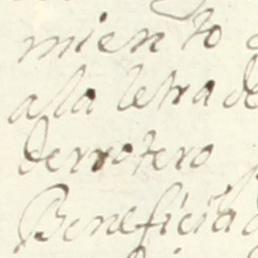 miento
a la letra de
derrotero
Beneficiad